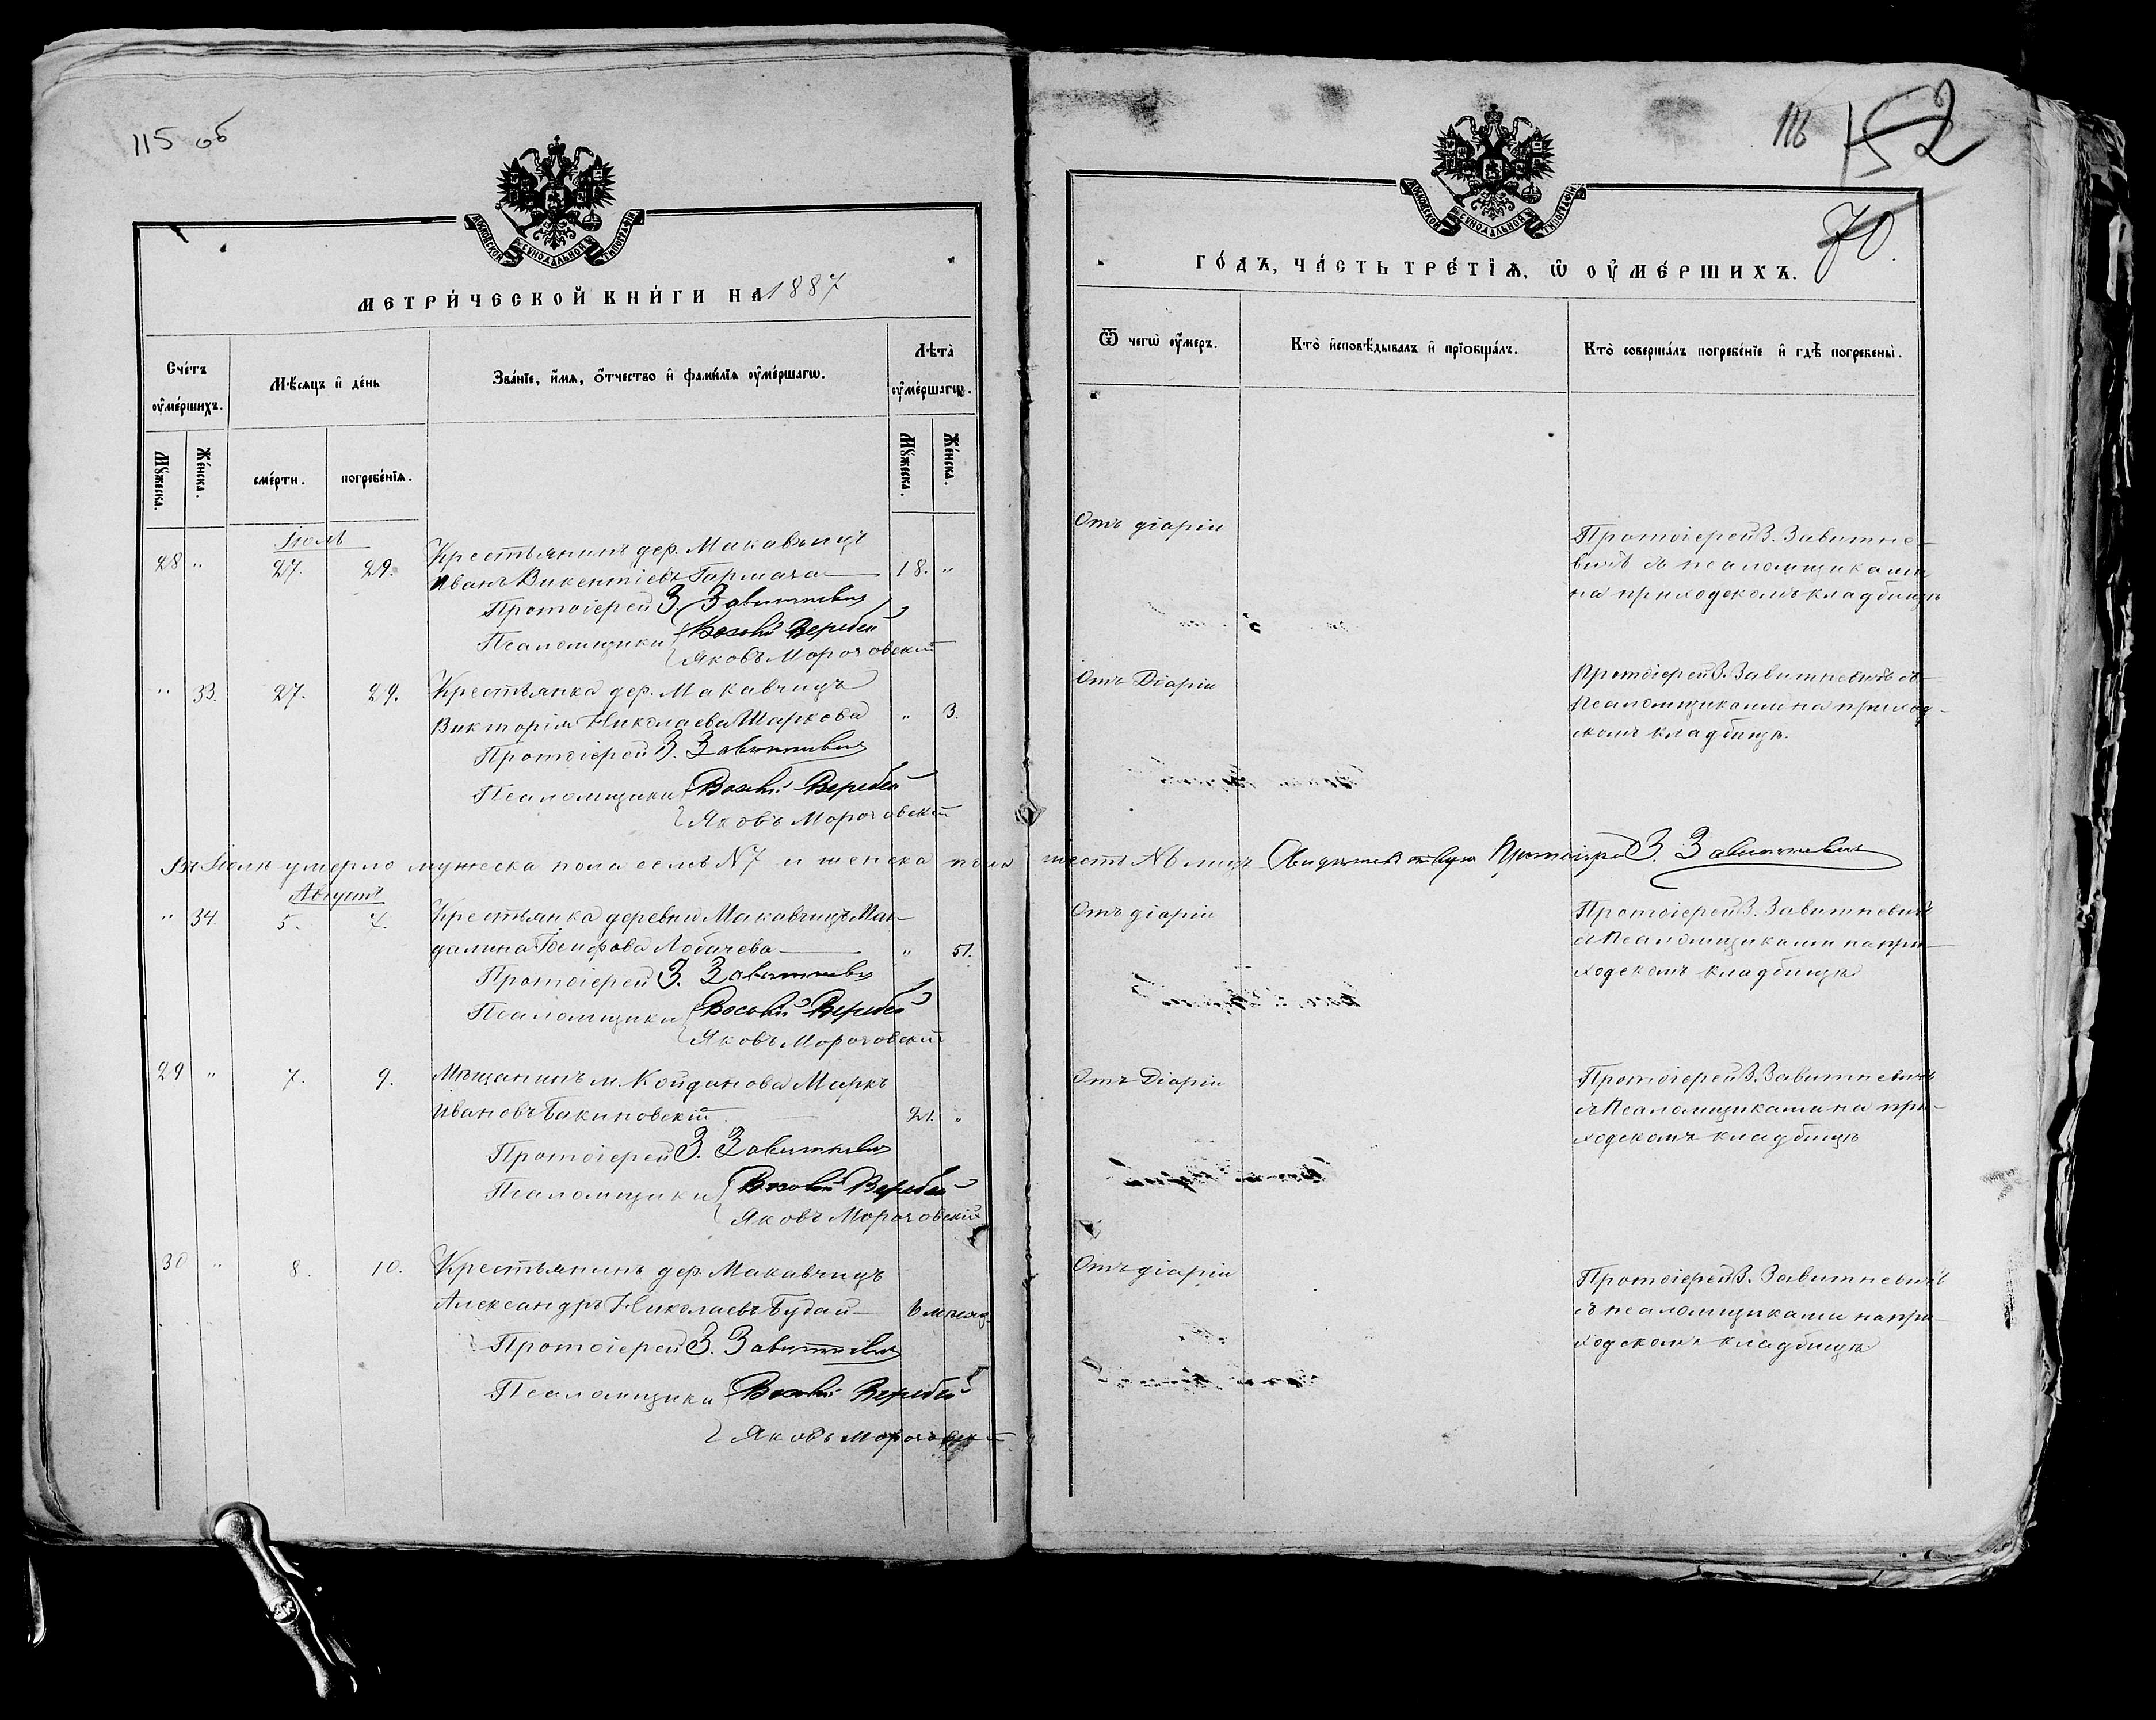 115 об
МОСКОВСКОЙ СѴНОДАЛЬНОЙ ТИПОГРАФІИ
МЕТРИ́ЧЕСКОЙ КНИ́ГИ НА 1887
Сче́тъ ᲂу҆ме́ршихъ.
Мѣ́сѧцъ и҆ де́нь
Зва́нїе, и҆́мѧ, ѻ҆́тчество и҆ фами́лїѧ ᲂу҆ме́ршагѡ.
Лѣ́та ᲂу҆ме́ршагѡ.
Мꙋ́жеска.
Же́нска.
сме́рти.
погребе́нїѧ.
Мꙋ́жеска.
Же́нска.
Іюль
28 " 27. 29. Крестьянинъ дер. Макавчицъ
Иванъ Викентіевъ Гармаза 18. "
Протоіерей З. Завитневич
Псаломщики Веребей
Яковъ Морочовскій
" 33. 27. 29. Крестьянка дер. Макавчицъ
Викторія Николаева Шаркова " 3.
Протоіерей З. Завитневич
Псаломщики Веребей
Яковъ Морочовскій
Въ Іюлѣ умерло мужеска пола семь №7 и женска пола
Августъ
" 34. 5. 7. Крестьянка деревни Макавчицъ Маг-
далина Лобачева " 51.
Протоіерей З. Завитневич
Псаломщики Веребей
Яковъ Морочовскій
29 " 7. 9. Мѣщанинъ м. Койданова Маркъ
Ивановъ Бакиновскій 21. "
Протоіерей З. Завитневич
Псаломщики Веребей
Яковъ Морочовскій
30 " 8. 10. Крестьянинъ дер. Макавчицъ
Александръ Николаевъ Будай 6 мѣсяц.
Протоіерей З. Завитневич
Псаломщики Веребей
Яковъ
116 152
70.
МОСКОВСКОЙ СѴНОДАЛЬНОЙ ТИПОГРАФІИ
ГО́ДЪ, ЧА́СТЬ ТРЕ́ТЇѦ, Ѡ҆ ОУ҆МЕ́РШИХЪ.
Ѿ чегѡ̀ ᲂу҆́меръ.
Кто̀ и҆сповѣ́дывалъ и҆ прїѻбща́лъ.
Кто̀ соверша́лъ погребе́нїе и҆ гдѣ̀ погребены̀.
Отъ діаріи
Протоіерей З. Завитне-
вичъ съ псаломщиками
на приходскомъ кладбищѣ
Отъ Діаріи
Протоіерей З. Завитневичъ съ
Псаломщиками на приход-
скомъ кладбищѣ.
шесть №6 лицъ Протоіерей З. Завитневич
Отъ діаріи
Протоіерей З. Завитневичъ
съ Псаломщиками на при-
ходскомъ кладбищѣ
Отъ Діаріи
Протоіерей З. Завитневичъ
съ Псаломщиками на при-
ходскомъ кладбищѣ
Отъ діаріи
Протоіерей З. Завитневичъ
съ псаломщиками на при-
ходскомъ кладбищѣ